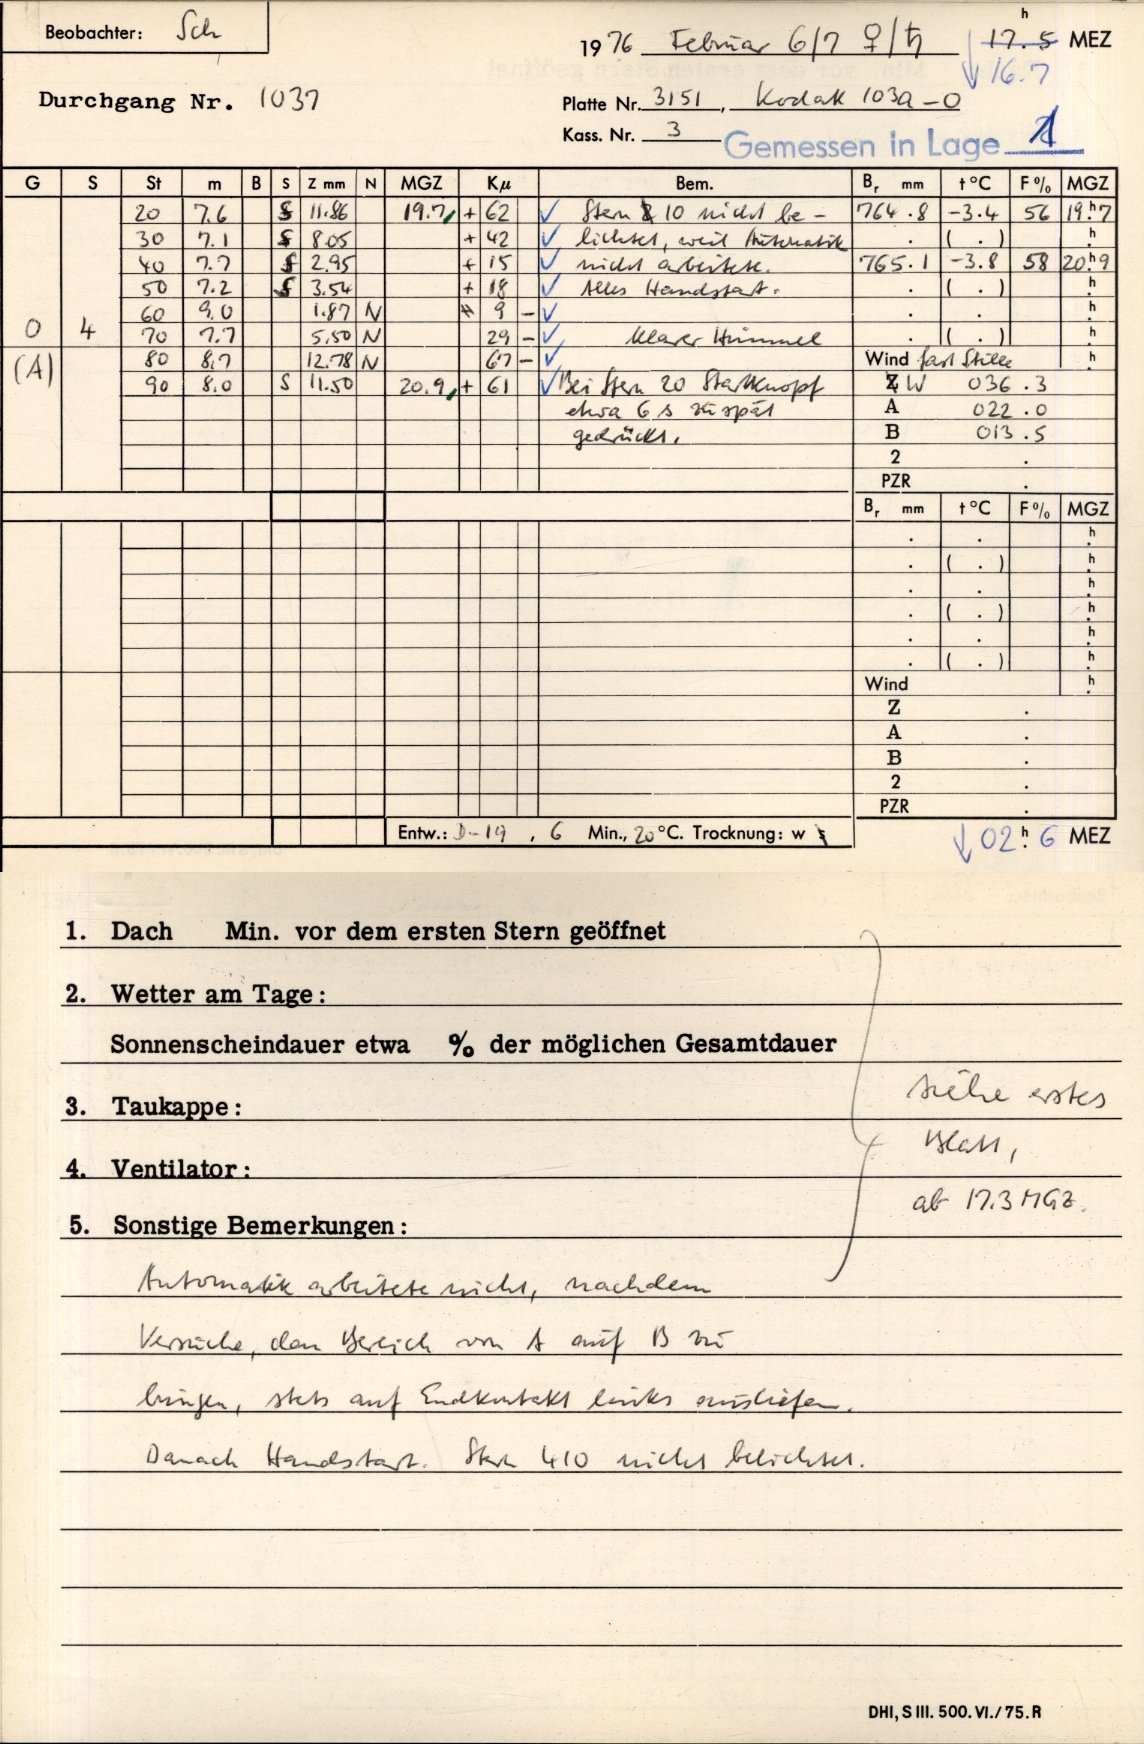 Beobachter: Sch
1976 Februar 6/7 ♀/♄ 17.5 h MEZ
↓ 16.7
Durchgang Nr. 1037
Platte Nr. 3151, Kodak 103a-O
Kass. Nr. 3 Gemessen in Lage 1
G S St m B S Z mm N MGZ Kμ Bem. Br mm t °C F% MGZ
20 7.6 S 11.86 19.7, + 62 ✓ Stern 10 nicht be- 764.8 -3.4 56 19.h7
30 7.1 S 8.05 + 42 ✓ lichtet, weil Automatik . ( . ) h
40 7.7 S 2.95 + 15 ✓ nicht arbeitete. 765.1 -3.8 58 20.h9
50 7.2 S 3.54 + 18 ✓ Alles Handstart. . ( . ) h
60 9.0 1.87 N 9 - ✓ . . h
0 4 70 7.7 5.50 N 29 - ✓ Klarer Himmel . ( . ) h
(A) 80 8.7 12.78 N 67 - ✓ Wind fast Stille h
90 8.0 S 11.50 20.9, + 61 ✓ Bei Stern 20 Startknopf Z W 036.3
etwa 6 s zu spät A 022.0
gedrückt. B 013.5
2 .
PZR .
Br mm t °C F% MGZ
. . h
. ( . ) h
. . h
. ( . ) h
. . h
. ( . ) h
Wind h
Z .
A .
B .
2 .
PZR .
Entw.: D-19, 6 Min., 20 °C. Trocknung: w s
↓ 02.h 6 MEZ
1. Dach Min. vor dem ersten Stern geöffnet
2. Wetter am Tage:
Sonnenscheindauer etwa % der möglichen Gesamtdauer
3. Taukappe:
siehe erstes
Blatt,
4. Ventilator:
ab 17.3 MGZ.
5. Sonstige Bemerkungen:
Automatik arbeitete nicht, nachdem
Versuche, den Bereich von A auf B zu
bringen, stets auf Endkontakt links ausliefen.
Danach Handstart. Stern 410 nicht belichtet.
DHI, S III. 500. VI./75. R